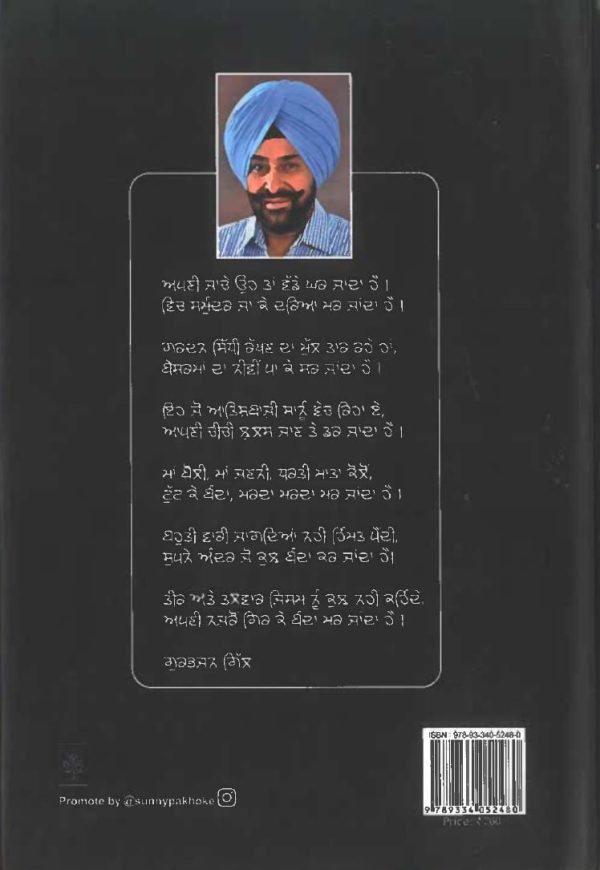 ਅਪਣੀ ਜਾਚੇ ਉਹ ਤਾਂ ਵੱਡੇ ਘਰ ਜਾਂਦਾ ਹੈ ।
ਵਿਚ ਸਮੁੰਦਰ ਜਾ ਕੇ ਦਰਿਆ ਮਰ ਜਾਂਦਾ ਹੈ ।
ਗਰਦਨ ਸਿੱਧੀ ਰੱਖਣ ਦਾ ਮੁੱਲ ਤਾਰ ਰਹੇ ਹਾਂ,
ਬੇਸ਼ਰਮਾਂ ਦਾ ਨੀਵੀਂ ਪਾ ਕੇ ਸਰ ਜਾਂਦਾ ਹੈ ।
ਇਹ ਜੋ ਆਤਿਸ਼ਬਾਜ਼ੀ ਸਾਨੂੰ ਵੇਚ ਰਿਹਾ ਏ,
ਆਪਣੀ ਚੀਚੀ ਝੁਲਸ ਜਾਣ ਤੇ ਡਰ ਜਾਂਦਾ ਹੈ ।
ਮਾਂ ਬੋਲੀ, ਮਾਂ ਜਣਨੀ, ਧਰਤੀ ਮਾਤਾ ਕੋਲੋਂ,
ਟੁੱਟ ਕੇ ਬੰਦਾ, ਮਰਦਾ ਮਰਦਾ ਮਰ ਜਾਂਦਾ ਹੈ ।
ਬਹੁਤੀ ਵਾਰੀ ਜਾਗਦਿਆਂ ਨਹੀਂ ਹਿੰਮਤ ਪੈਂਦੀ,
ਸੁਪਨੇ ਅੰਦਰ ਜੋ ਕੁਝ ਬੰਦਾ ਕਰ ਜਾਂਦਾ ਹੈ।
ਤੀਰ ਅਤੇ ਤਲਵਾਰ ਜਿਸਮ ਨੂੰ ਕੁਝ ਨਹੀਂ ਕਹਿੰਦੇ,
ਅਪਣੀ ਨਜ਼ਰੋਂ ਗਿਰ ਕੇ ਬੰਦਾ ਮਰ ਜਾਂਦਾ ਹੈ ।
ਗੁਰਭਜਨ ਗਿੱਲ
ISBN : 978-93-340-5248-0
9 789334 052480
Price: ₹260
Promote by @sunnypakhoke